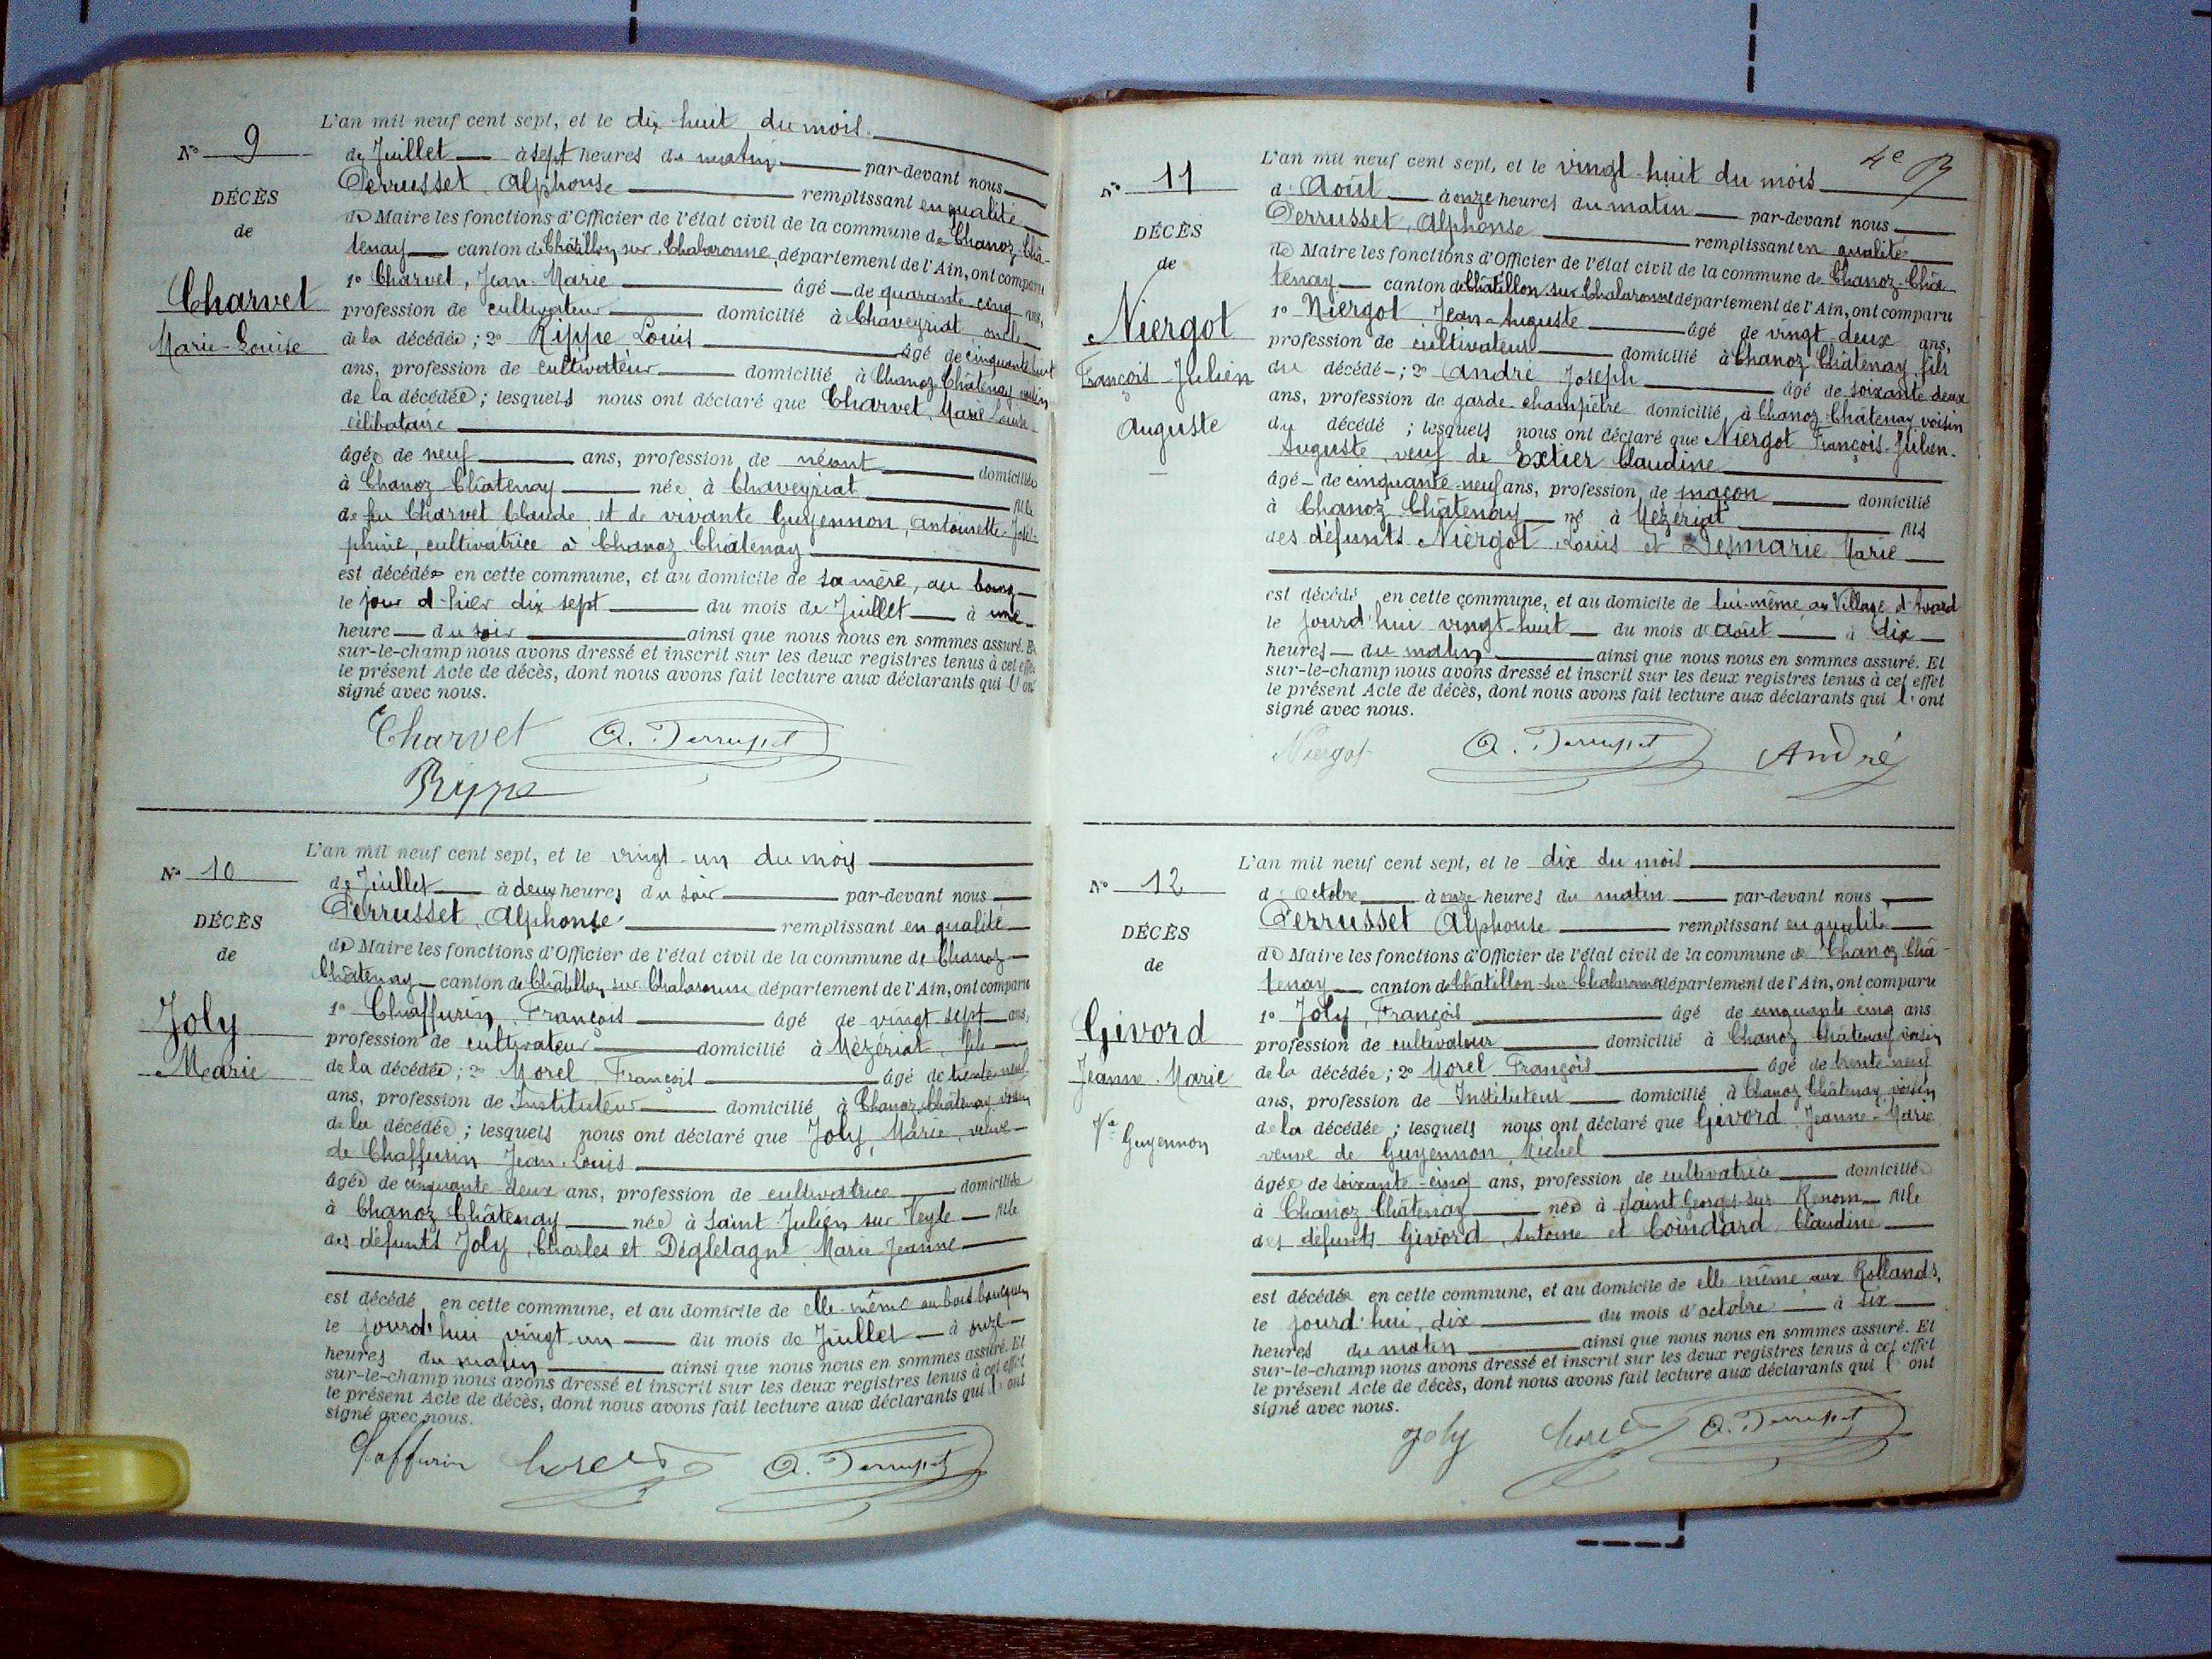 L'an mil neuf cent sept, et le dix-huit du mois
N° 9
de Juillet à sept heures du matin par-devant nous
Perrusset Alphonse remplissant en qualité
DÉCÈS
de Maire les fonctions d'Officier de l'état civil de la commune de Chanoz-Châ-
de
tenay canton de Châtillon sur Chalaronne, département de l'Ain, ont comparu
1° Charvet, Jean-Marie âgé de quarante cinq ans,
Charvet
profession de cultivateur domicilié à Chaveyriat oncle
Marie-Louise
de la décédée ; 2° Rippe Louis âgé de cinquante huit
ans, profession de cultivateur domicilié à Chanoz Châtenay voisin
de la décédée ; lesquels nous ont déclaré que Charvet, Marie-Louise
célibataire
âgée de neuf ans, profession de néant domiciliée
à Chanoz Châtenay née à Chaveyriat fille
de feu Charvet Claude et de vivante Guyennon, Antoinette-José-
phine, cultivatrice à Chanoz Châtenay
est décédée en cette commune, et au domicile de sa mère, au bourg
le jour d'hier dix sept du mois de Juillet à une
heure du soir ainsi que nous nous en sommes assuré. Et
sur-le-champ nous avons dressé et inscrit sur les deux registres tenus à cet effet
le présent Acte de décès, dont nous avons fait lecture aux déclarants qui l'ont
signé avec nous.
Charvet A. Perrusset
Rippe
L'an mil neuf cent sept, et le vingt-un du mois
N° 10
de Juillet à deux heures du soir par-devant nous
Perrusset, Alphonse remplissant en qualité
DÉCÈS
de Maire les fonctions d'Officier de l'état civil de la commune de Chanoz
de
Châtenay canton de Châtillon sur Chalaronne département de l'Ain, ont comparu
1° Chaffurin, François âgé de vingt sept ans,
Joly
profession de cultivateur domicilié à Mézériat, fils
Marie
de la décédée ; 2° Morel François âgé de trente neuf
ans, profession de Instituteur domicilié à Chanoz Châtenay voisin
de la décédée ; lesquels nous ont déclaré que Joly, Marie, veuve
de Chaffurin Jean-Louis
âgée de cinquante deux ans, profession de cultivatrice domiciliée
à Chanoz Châtenay née à Saint Julien sur Veyle fille
des défunts Joly, Charles et Dégletagne Marie-Jeanne
est décédé en cette commune, et au domicile de elle-même au bois bouquin
le jourd'hui vingt-un du mois de Juillet à onze
heures du matin ainsi que nous nous en sommes assuré. Et
sur-le-champ nous avons dressé et inscrit sur les deux registres tenus à cet effet
le présent Acte de décès, dont nous avons fait lecture aux déclarants qui l'ont
signé avec nous.
Chaffurin Morel A. Perrusset
4e
L'an mil neuf cent sept, et le vingt-huit du mois
N° 11
d'Août à onze heures du matin par-devant nous
Perrusset, Alphonse remplissant en qualité
DÉCÈS
de Maire les fonctions d'Officier de l'état civil de la commune de Chanoz-Châ
de
tenay canton de Châtillon sur Chalaronne département de l'Ain, ont comparu
1° Niergot Jean-Auguste âgé de vingt deux ans,
Niergot
profession de cultivateur domicilié à Chanoz Châtenay, fils
François-Julien
du décédé ; 2° André Joseph âgé de soixante-deux
ans, profession de garde-champêtre domicilié à Chanoz Châtenay voisin
Auguste
du décédé ; lesquels nous ont déclaré que Niergot François-Julien-
Auguste, veuf de Extier Claudine
âgé de cinquante-neuf ans, profession de maçon domicilié
à Chanoz Châtenay né à Mézériat fils
des défunts Niergot Louis et Desmarie Marie
est décédé en cette commune, et au domicile de lui-même au Village d'Avard
le jourd'hui vingt-huit du mois d'août à dix
heures du matin ainsi que nous nous en sommes assuré. Et
sur-le-champ nous avons dressé et inscrit sur les deux registres tenus à cet effet
le présent Acte de décès, dont nous avons fait lecture aux déclarants qui l'ont
signé avec nous.
Niergot A. Perrusset André
L'an mil neuf cent sept, et le dix du mois
N° 12
d'Octobre à onze heures du matin par-devant nous
Perrusset Alphonse remplissant en qualité
DÉCÈS
de Maire les fonctions d'Officier de l'état civil de la commune de Chanoz Châ-
de
tenay canton de Châtillon-sur-Chalaronne département de l'Ain, ont comparu
1° Joly, François âgé de cinquante cinq ans
Givord
profession de cultivateur domicilié à Chanoz Châtenay voisin
Jeanne-Marie
de la décédée ; 2° Morel François âgé de trente neuf
ans, profession de Instituteur domicilié à Chanoz Châtenay voisin
Ve Guyennon
de la décédée ; lesquels nous ont déclaré que Givord Jeanne-Marie
veuve de Guyennon Michel
âgée de soixante-cinq ans, profession de cultivatrice domiciliée
à Chanoz Châtenay née à Saint Georges-sur Renom fille
des défunts Givord, Antoine et Coindard Claudine
est décédée en cette commune, et au domicile de elle même aux Rollands,
le jourd'hui, dix du mois d'octobre à six
heures du matin ainsi que nous nous en sommes assuré. Et
sur-le-champ nous avons dressé et inscrit sur les deux registres tenus à cet effet
le présent Acte de décès, dont nous avons fait lecture aux déclarants qui l'ont
signé avec nous.
Joly Morel A. Perrusset